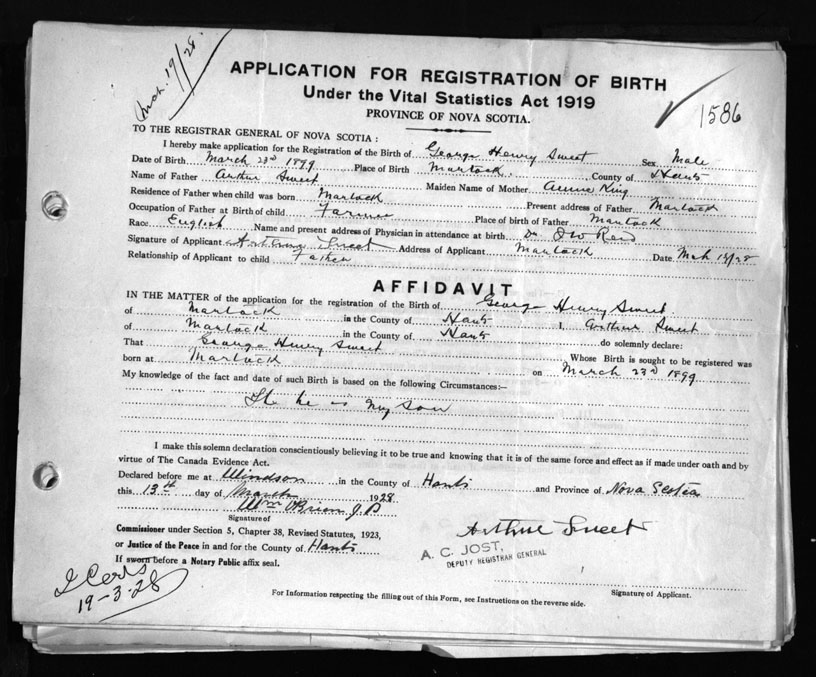 Mch. 19/28.
APPLICATION FOR REGISTRATION OF BIRTH
Under the Vital Statistics Act 1919
PROVINCE OF NOVA SCOTIA.
1586
TO THE REGISTRAR GENERAL OF NOVA SCOTIA:
I hereby make application for the Registration of the Birth of George Henry Sweet Sex Male
Date of Birth March 23rd 1899 Place of Birth Martock. County of Hants
Name of Father Arthur Sweet Maiden Name of Mother Annie King
Residence of Father when child was born Martock Present address of Father Martock
Occupation of Father at Birth of child Farmer Place of birth of Father Martock
Race English Name and present address of Physician in attendance at birth Dr. Reid
Signature of Applicant Arthur Sweet Address of Applicant Martock Date Mch 13/28
Relationship of Applicant to child Father
AFFIDAVIT
IN THE MATTER of the application for the registration of the Birth of George Henry Sweet
of Martock in the County of Hants I, Arthur Sweet
of Martock in the County of Hants do solemnly declare:
That George Henry Sweet Whose Birth is sought to be registered was
born at Martock on March 23rd 1899
My knowledge of the fact and date of such Birth is based on the following Circumstances:—
he is my son
I make this solemn declaration conscientiously believing it to be true and knowing that it is of the same force and effect as if made under oath and by
virtue of The Canada Evidence Act.
Declared before me at Windsor in the County of Hants and Province of Nova Scotia
this 13th day of March 1928
Wm O'Brien J.P
Signature of
Commissioner under Section 5, Chapter 38, Revised Statutes, 1923,
or Justice of the Peace in and for the County of Hants
If sworn before a Notary Public affix seal.
Arthur Sweet
A. C. JOST,
DEPUTY REGISTRAR GENERAL
Signature of Applicant.
19-3-28
For Information respecting the filling out of this Form, see Instructions on the reverse side.